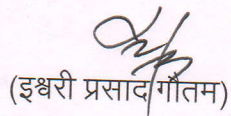 (इश्वरी प्रसाद गौतम)